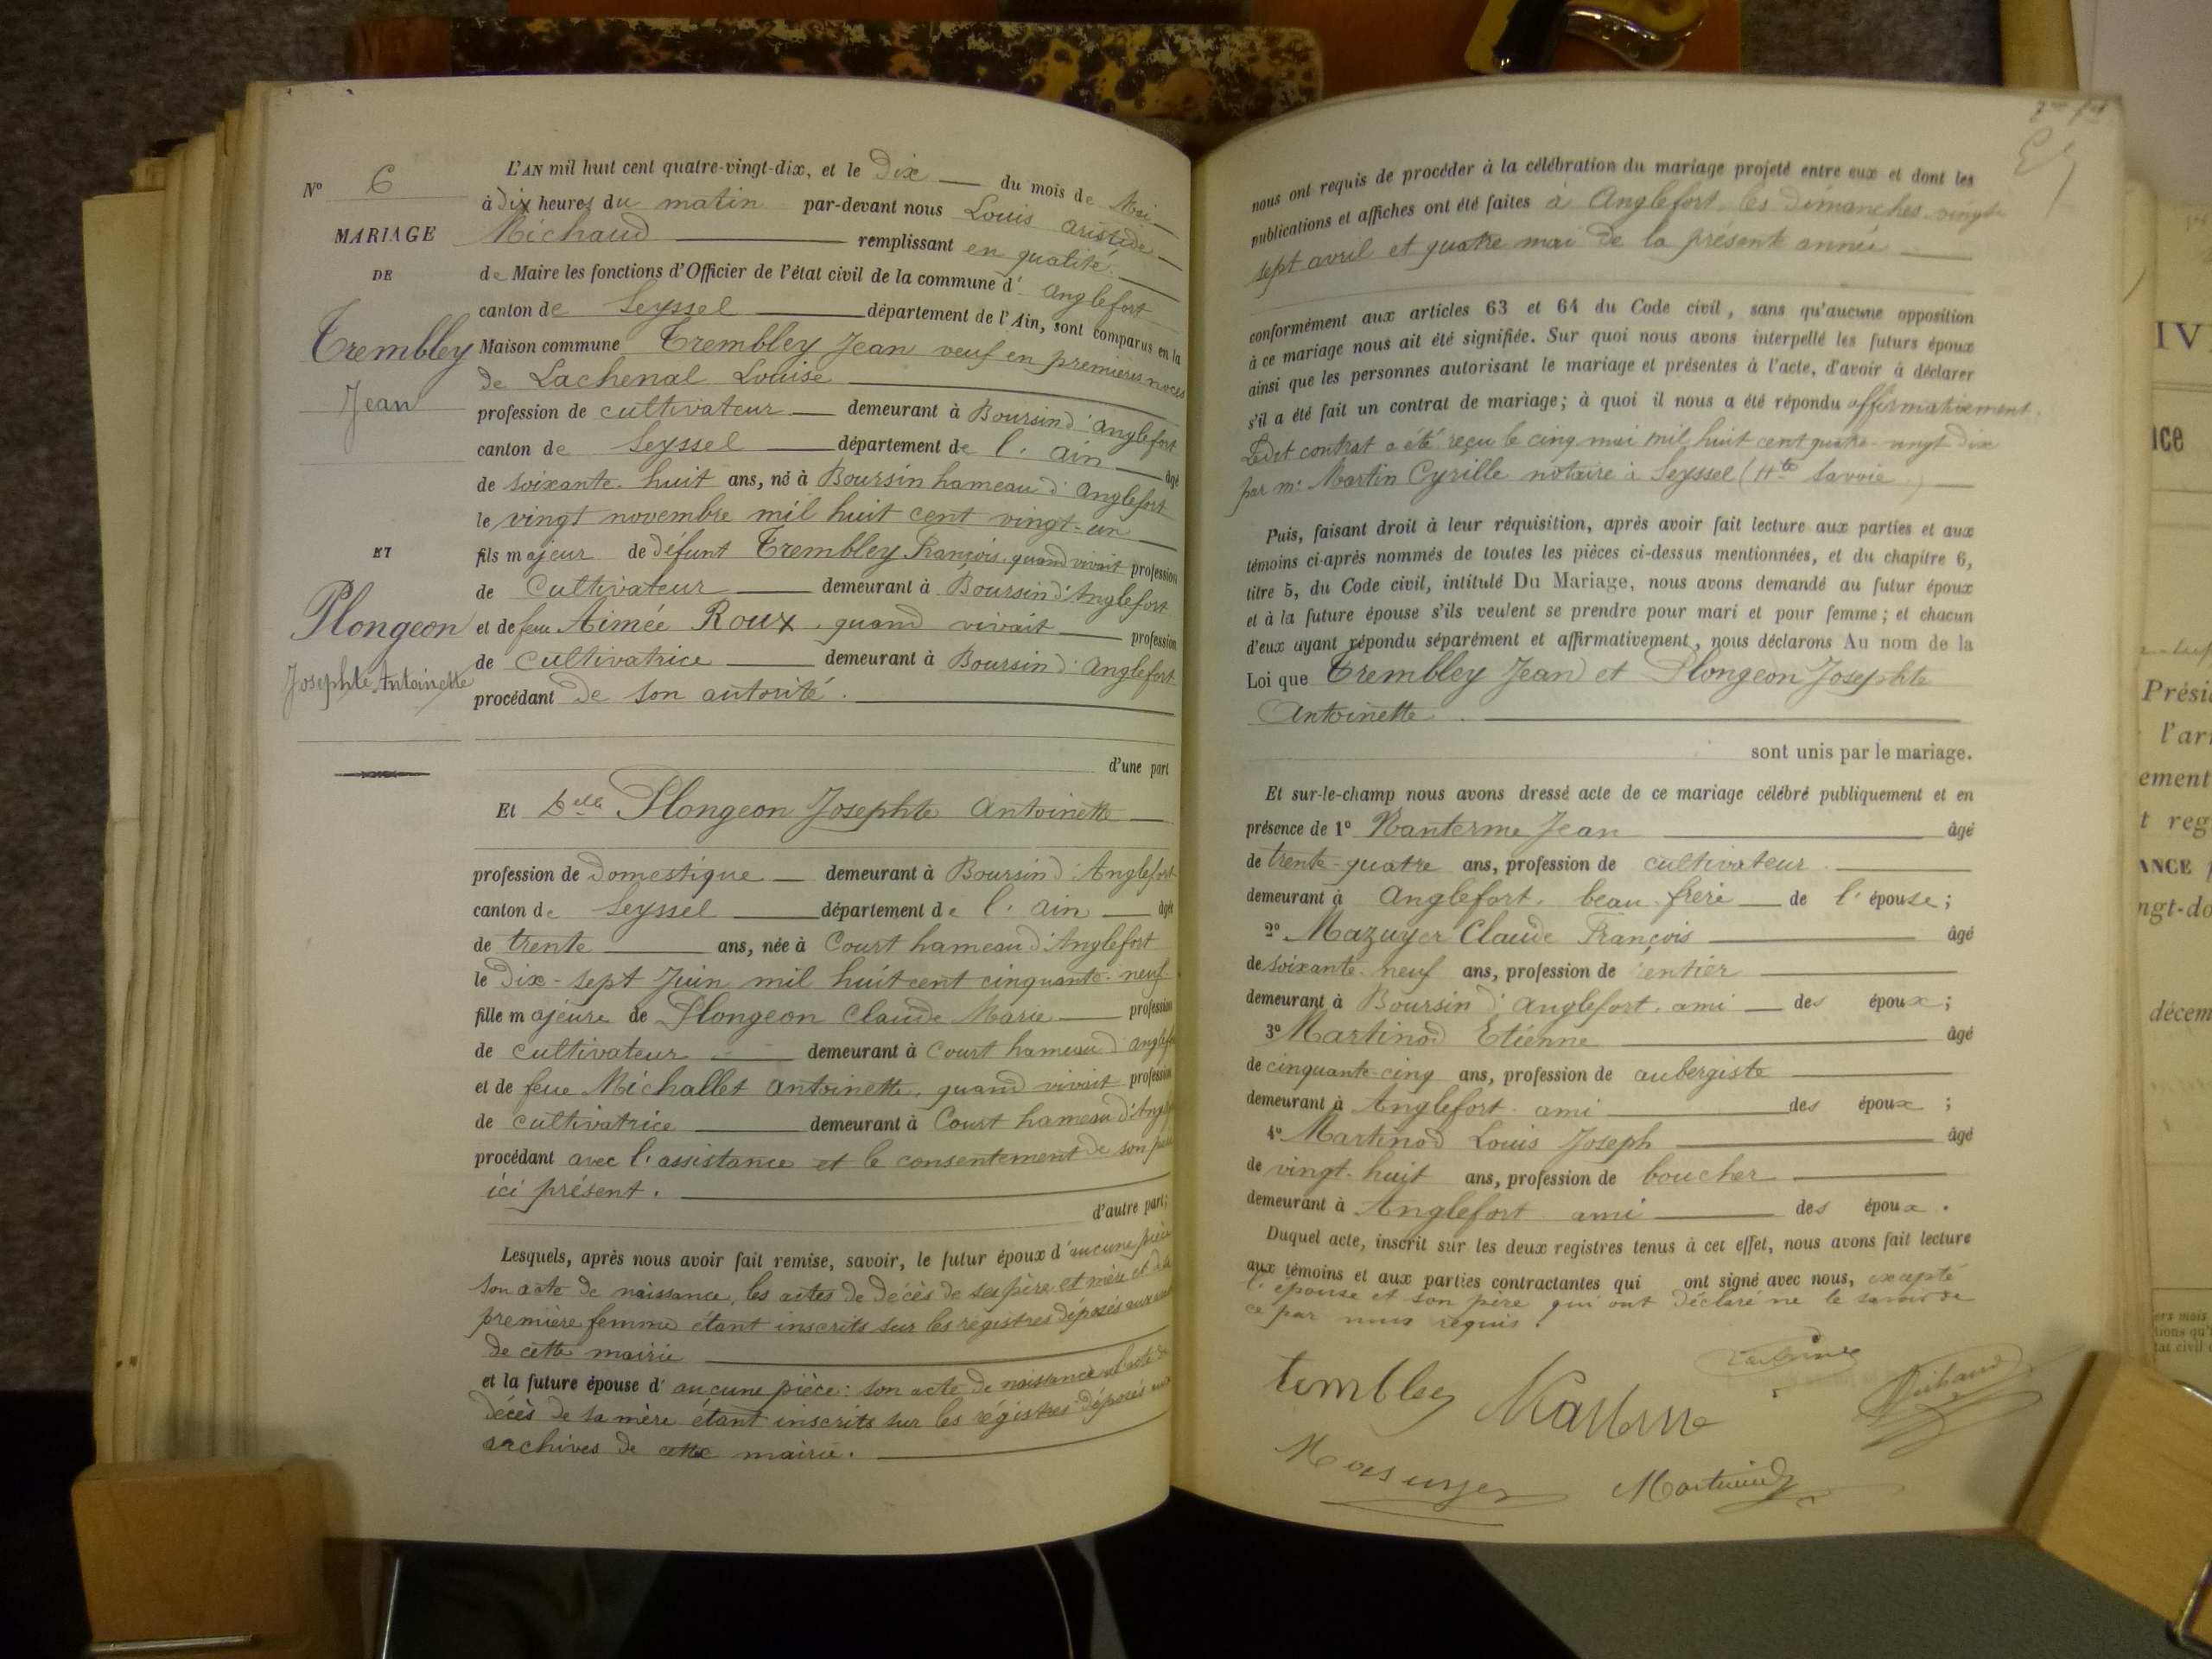 N° 6
MARIAGE
DE
Trembley
Jean
ET
Plongeon
Josephte Antoinette
L'AN mil huit cent quatre-vingt-dix, et le Dix du mois de Mai
à Dix heures du matin par-devant nous Louis Aristide
Michaud remplissant en qualité
de Maire les fonctions d'Officier de l'état civil de la commune d' Anglefort
canton de Seyssel département de l'Ain, sont comparus en la
Maison commune Trembley Jean veuf en premières noces
de Lachenal Louise
profession de cultivateur demeurant à Boursin d'Anglefort
canton de Seyssel département de l'Ain âgé
de soixante-huit ans, né à Boursin hameau d'Anglefort
le vingt novembre mil huit cent vingt-un
fils majeur de défunt Trembley François, quand vivait profession
de Cultivateur demeurant à Boursin d'Anglefort
et de feue Aimée Roux, quand vivait profession
de cultivatrice demeurant à Boursin d'Anglefort
procédant de son autorité.
d'une part
Et Delle Plongeon Josephte Antoinette
profession de Domestique demeurant à Boursin d'Anglefort
canton de Seyssel département de l'Ain âgée
de trente ans, née à Court hameau d'Anglefort
le Dix-sept Juin mil huit cent cinquante-neuf
fille majeure de Plongeon Claude Marie profession
de cultivateur demeurant à Court hameau d'Anglefort
et de feue Michallet Antoinette, quand vivait profession
de cultivatrice demeurant à Court hameau d'Anglefort
procédant avec l'assistance et le consentement de son père
ici présent.
d'autre part;
Lesquels, après nous avoir fait remise, savoir, le futur époux d'aucune pièce
son acte de naissance, les actes de décès de ses père et mère et de sa
première femme étant inscrits sur les registres déposés aux
de cette mairie
et la future épouse d'aucune pièce: son acte de naissance et l'acte de
décès de sa mère étant inscrits sur les régistres déposés aux
archives de cette mairie.
nous ont requis de procéder à la célébration du mariage projeté entre eux et dont les
publications et affiches ont été faites à Anglefort les dimanches vingt-
sept avril et quatre mai de la présente année
conformément aux articles 63 et 64 du Code civil, sans qu'aucune opposition
à ce mariage nous ait été signifiée. Sur quoi nous avons interpellé les futurs époux
ainsi que les personnes autorisant le mariage et présentes à l'acte, d'avoir à déclarer
s'il a été fait un contrat de mariage; à quoi il nous a été répondu affirmativement.
Ledit contrat a été reçu le cinq mai mil huit cent quatre-vingt dix
par me Martin Cyrille notaire à Seyssel (Hte Savoie)
Puis, faisant droit à leur réquisition, après avoir fait lecture aux parties et aux
témoins ci-après nommés de toutes les pièces ci-dessus mentionnées, et du chapitre 6,
titre 5, du Code civil, intitulé Du Mariage, nous avons demandé au futur époux
et à la future épouse s'ils veulent se prendre pour mari et pour femme; et chacun
d'eux ayant répondu séparément et affirmativement, nous déclarons Au nom de la
Loi que Trembley Jean et Plongeon Josephte
Antoinette.
sont unis par le mariage.
Et sur-le-champ nous avons dressé acte de ce mariage célébré publiquement et en
présence de 1° Nanterme Jean âgé
de trente-quatre ans, profession de cultivateur
demeurant à Anglefort, beau-frère de l'épouse;
2° Mazuyer Claude François âgé
de soixante-neuf ans, profession de rentier
demeurant à Boursin d'Anglefort, ami des époux;
3° Martinod Etienne âgé
de cinquante-cinq ans, profession de aubergiste
demeurant à Anglefort ami des époux;
4° Martinod Louis Joseph âgé
de vingt-huit ans, profession de boucher
demeurant à Anglefort ami des époux.
Duquel acte, inscrit sur les deux registres tenus à cet effet, nous avons fait lecture
aux témoins et aux parties contractantes qui ont signé avec nous, excepté
l'épouse et son père qui ont déclaré ne le savoir de
ce par nous requis.
Michaud
Martinod
IV
Présid
l'ar
ement
t reg
ANCE
ngt-do
décem